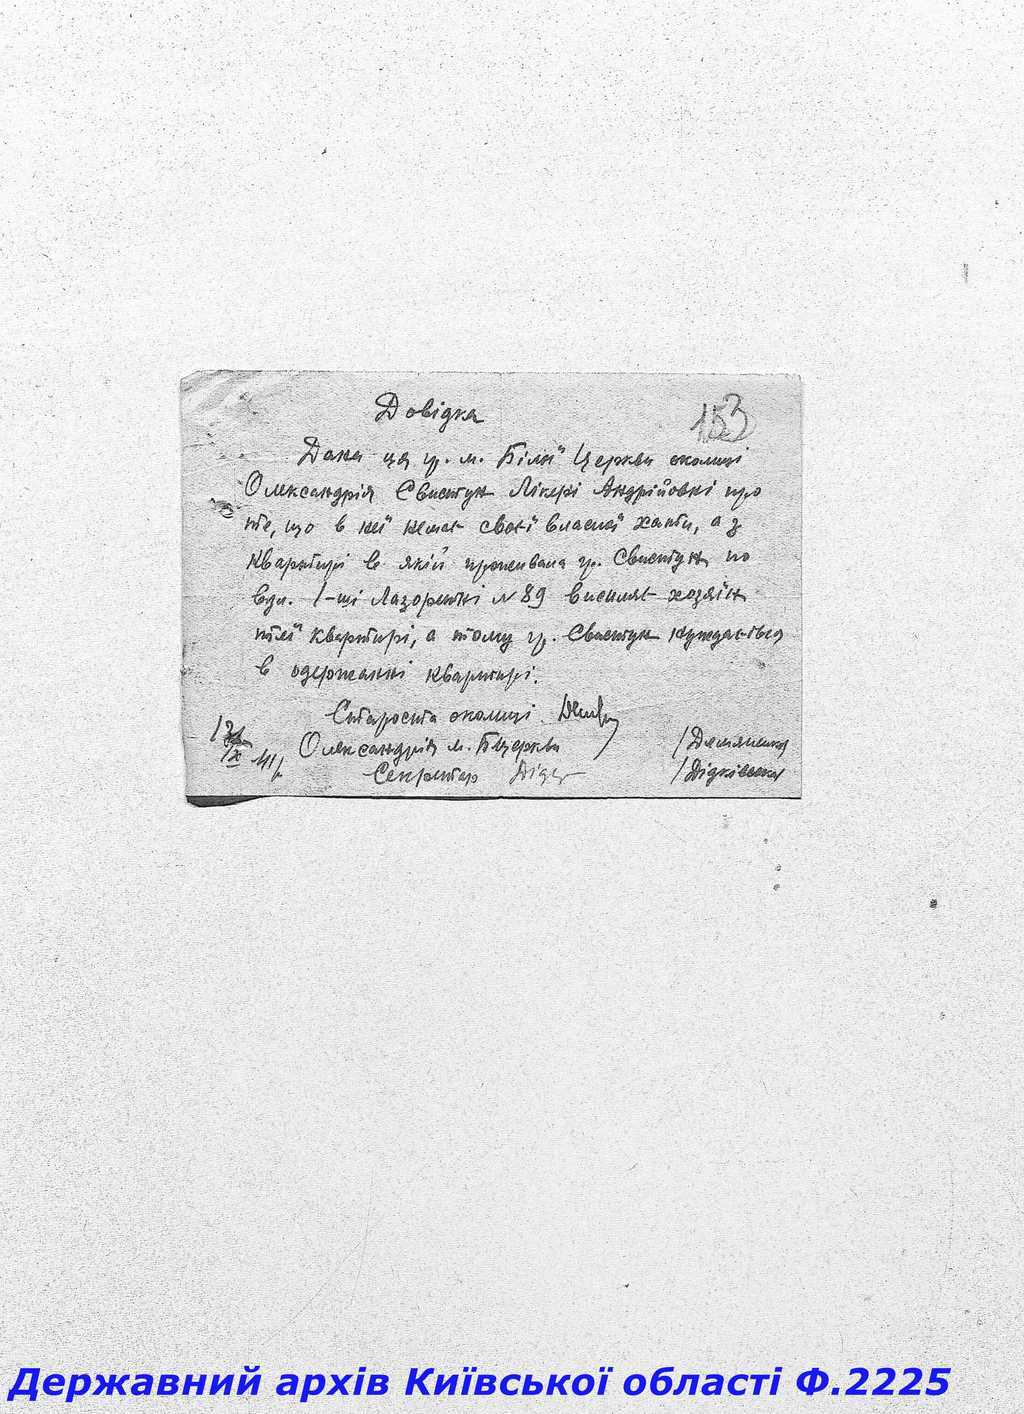 Довідка
153
Дана ця гр. м. Білої Церкви околиці
Олександрія Свистун Лікері Андрійовні про
те, що в неї немає своєї власної хати, а з
квартирі в якій проживала гр. Свистун по
вул. І-ші Лазоретні № 89 виселяє хозяїн
тієї квартирі, а тому гр. Свистун нуждається
в одержанні квартирі.
Старости околиці
Олександрія м. Б Церкви /Демяненко/
Секретар /Дідківська/
X 41 р
Державний архів Київської області Ф.2225